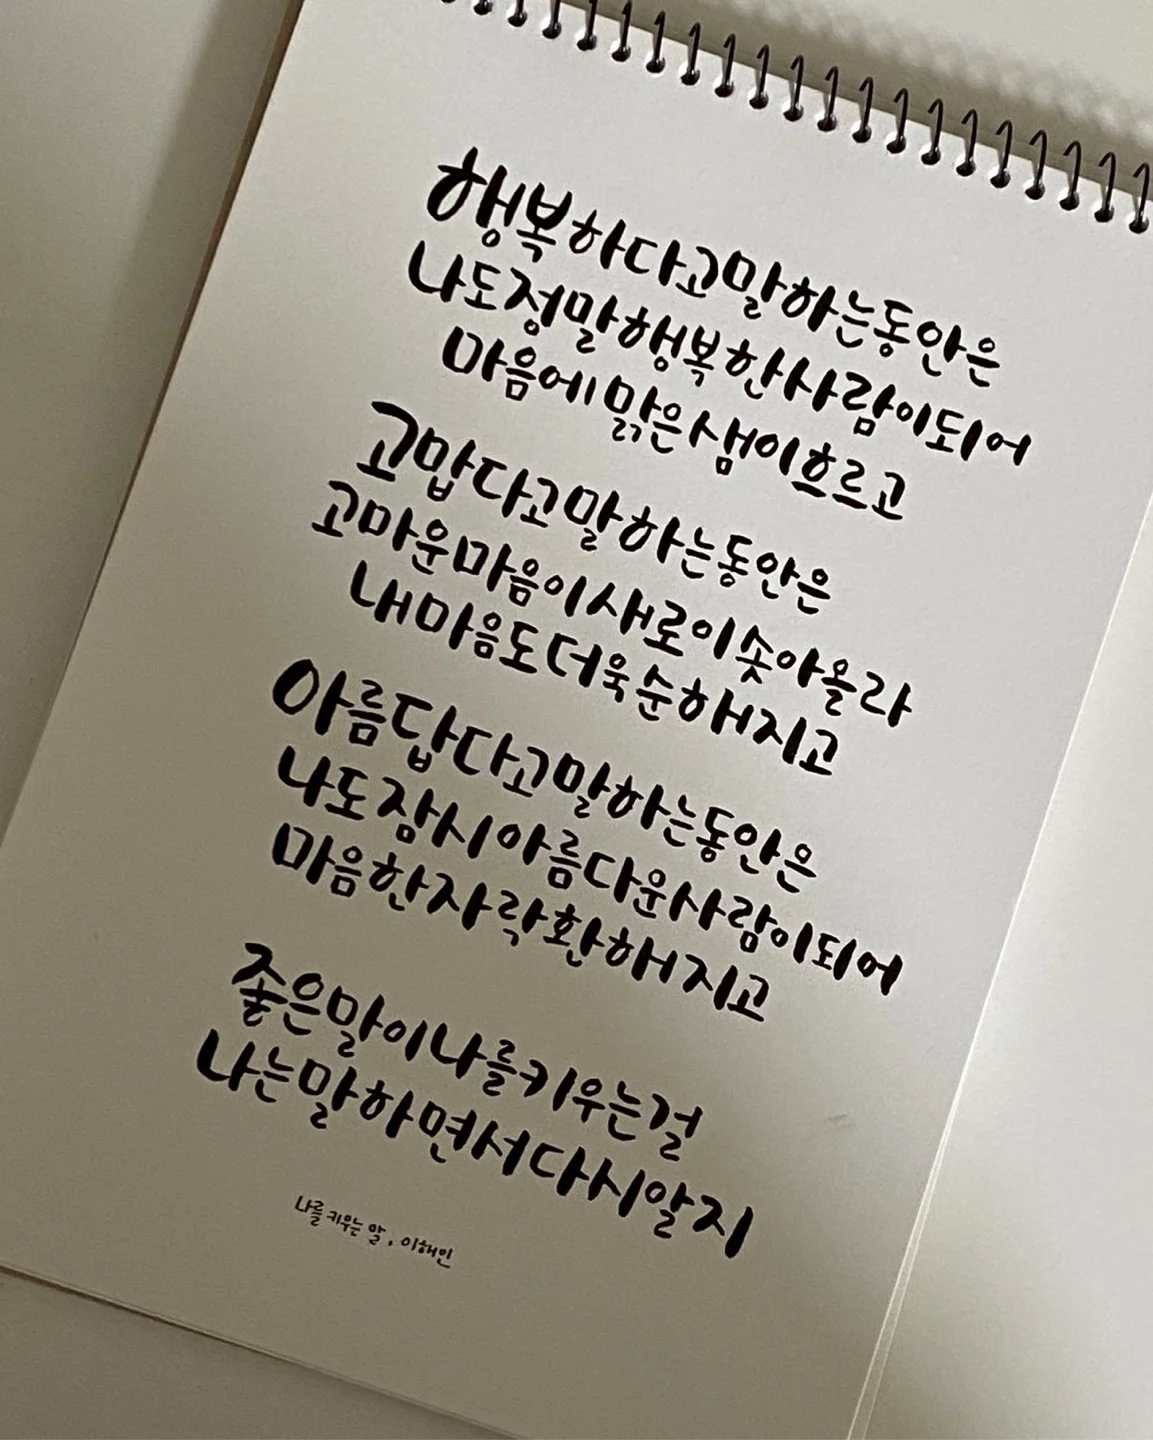 행복하다고 말하는 동안은
나도 정말 행복한 사람이 되어
마음에 맑은 샘이 흐르고
고맙다고 말하는 동안은
고마운 마음이 새로이 솟아올라
내 마음도 더욱 순해지고
아름답다고 말하는 동안은
나도 잠시 아름다운 사람이 되어
마음 한 자락 환해지고
좋은 말이 나를 키우는 걸
나는 말하면서 다시 알지
나를 키우는 말, 이해인